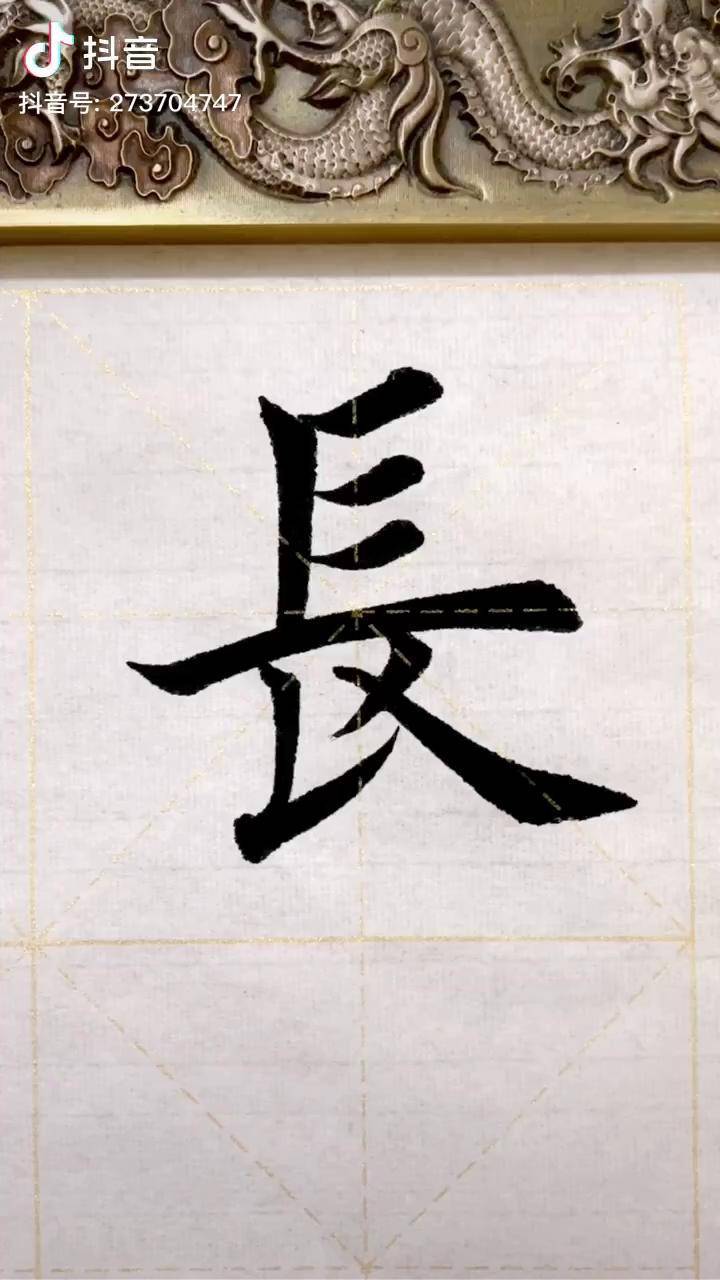 抖音
抖音号: 273704747
長